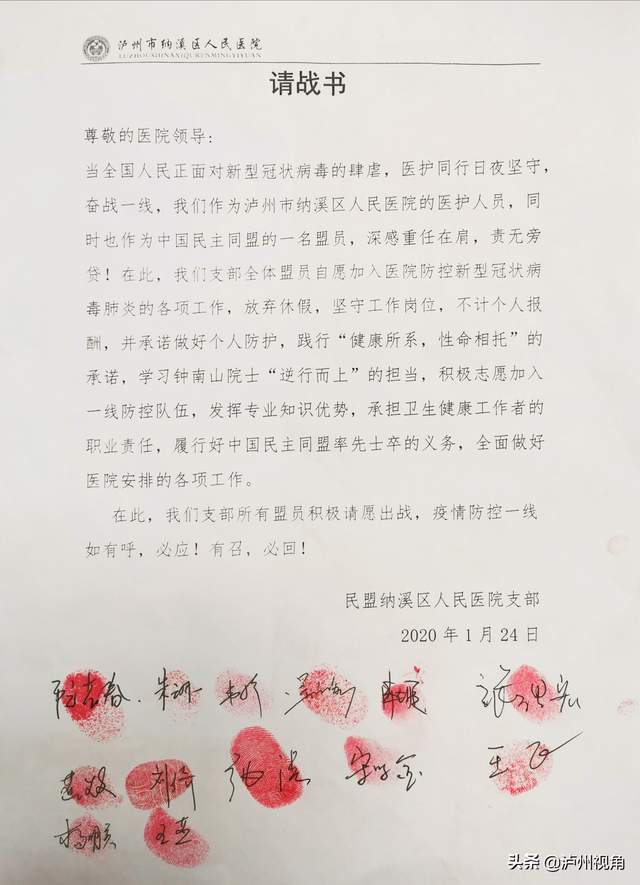 泸州市纳溪区人民医院
LUZHOUSHINAXIQURENMINGYIYUAN
请战书
尊敬的医院领导:
当全国人民正面对新型冠状病毒的肆虐，医护同行日夜坚守，
奋战一线，我们作为泸州市纳溪区人民医院的医护人员，同
时也作为中国民主同盟的一名盟员，深感重任在肩，责无旁
贷！在此，我们支部全体盟员自愿加入医院防控新型冠状病
毒肺炎的各项工作，放弃休假，坚守工作岗位，不计个人报
酬，并承诺做好个人防护，践行“健康所系，性命相托”的
承诺，学习钟南山院士“逆行而上”的担当，积极志愿加入
一线防控队伍，发挥专业知识优势，承担卫生健康工作者的
职业责任，履行好中国民主同盟率先士卒的义务，全面做好
医院安排的各项工作。
在此，我们支部所有盟员积极请愿出战，疫情防控一线
如有呼，必应！有召，必回！
民盟纳溪区人民医院支部
2020 年 1 月 24 日
刘倚
王飞
王燕
头条 @泸州视角